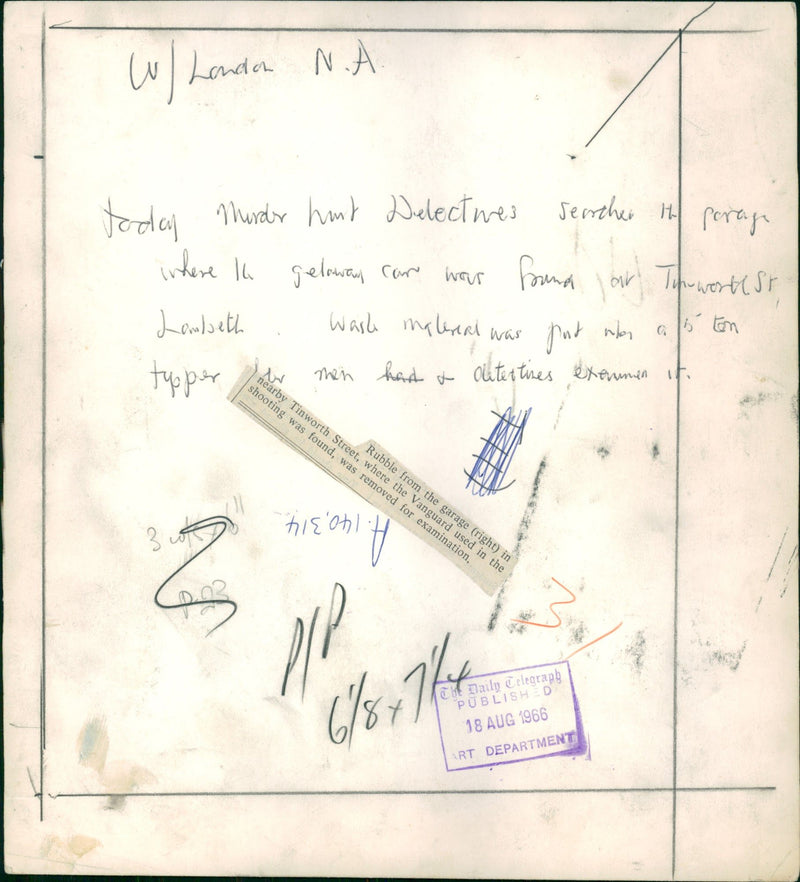 W/London N.A.
Today Murder hunt Detectives searched the garage
where the getaway car was found at Tinworth St,
Lambeth. Waste material was put into a 5 ton
tipper men had & detectives examined it.
Rubble from the garage (right) in
nearby Tinworth Street, where the Vanguard used in the
shooting was found, was removed for examination.
A.140,314
P.23
P/P
6 1/8 + 7 1/4
The Daily Telegraph
PUBLISHED
18 AUG 1966
ART DEPARTMENT